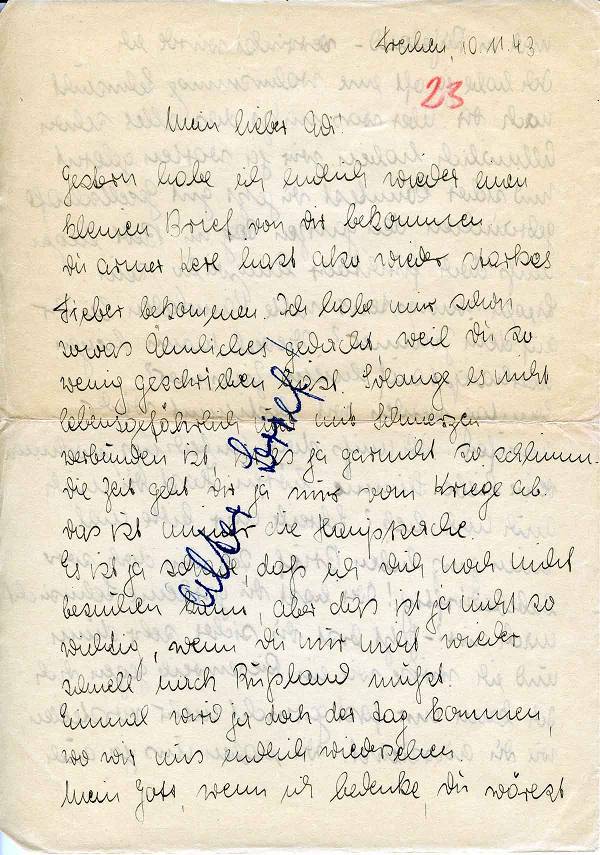 10.11.43
23
Mein lieber Adi!
Gestern habe ich endlich wieder einen
kleinen Brief von dir bekommen
du armer Kerl hast also wieder starkes
Fieber bekommen. Ich habe mir schon
sowas Ähnliches gedacht, weil du so
wenig geschrieben hast. Solange es nicht
lebensgefährlich und mit Schmerzen
verbunden ist, ist es ja garnicht so schlimm.
die Zeit geht dir ja nur vom Kriege ab.
das ist immer die Hauptsache.
Es ist ja schade, daß ich dich noch nicht
besuchen kann, aber das ist ja nicht so
wichtig, wenn du nur nicht wieder
schnell nach Rußland mußt.
Einmal wird ja doch der Tag kommen,
wo wir uns endlich wiedersehen.
Mein Gott, wenn ich bedenke, du wärest